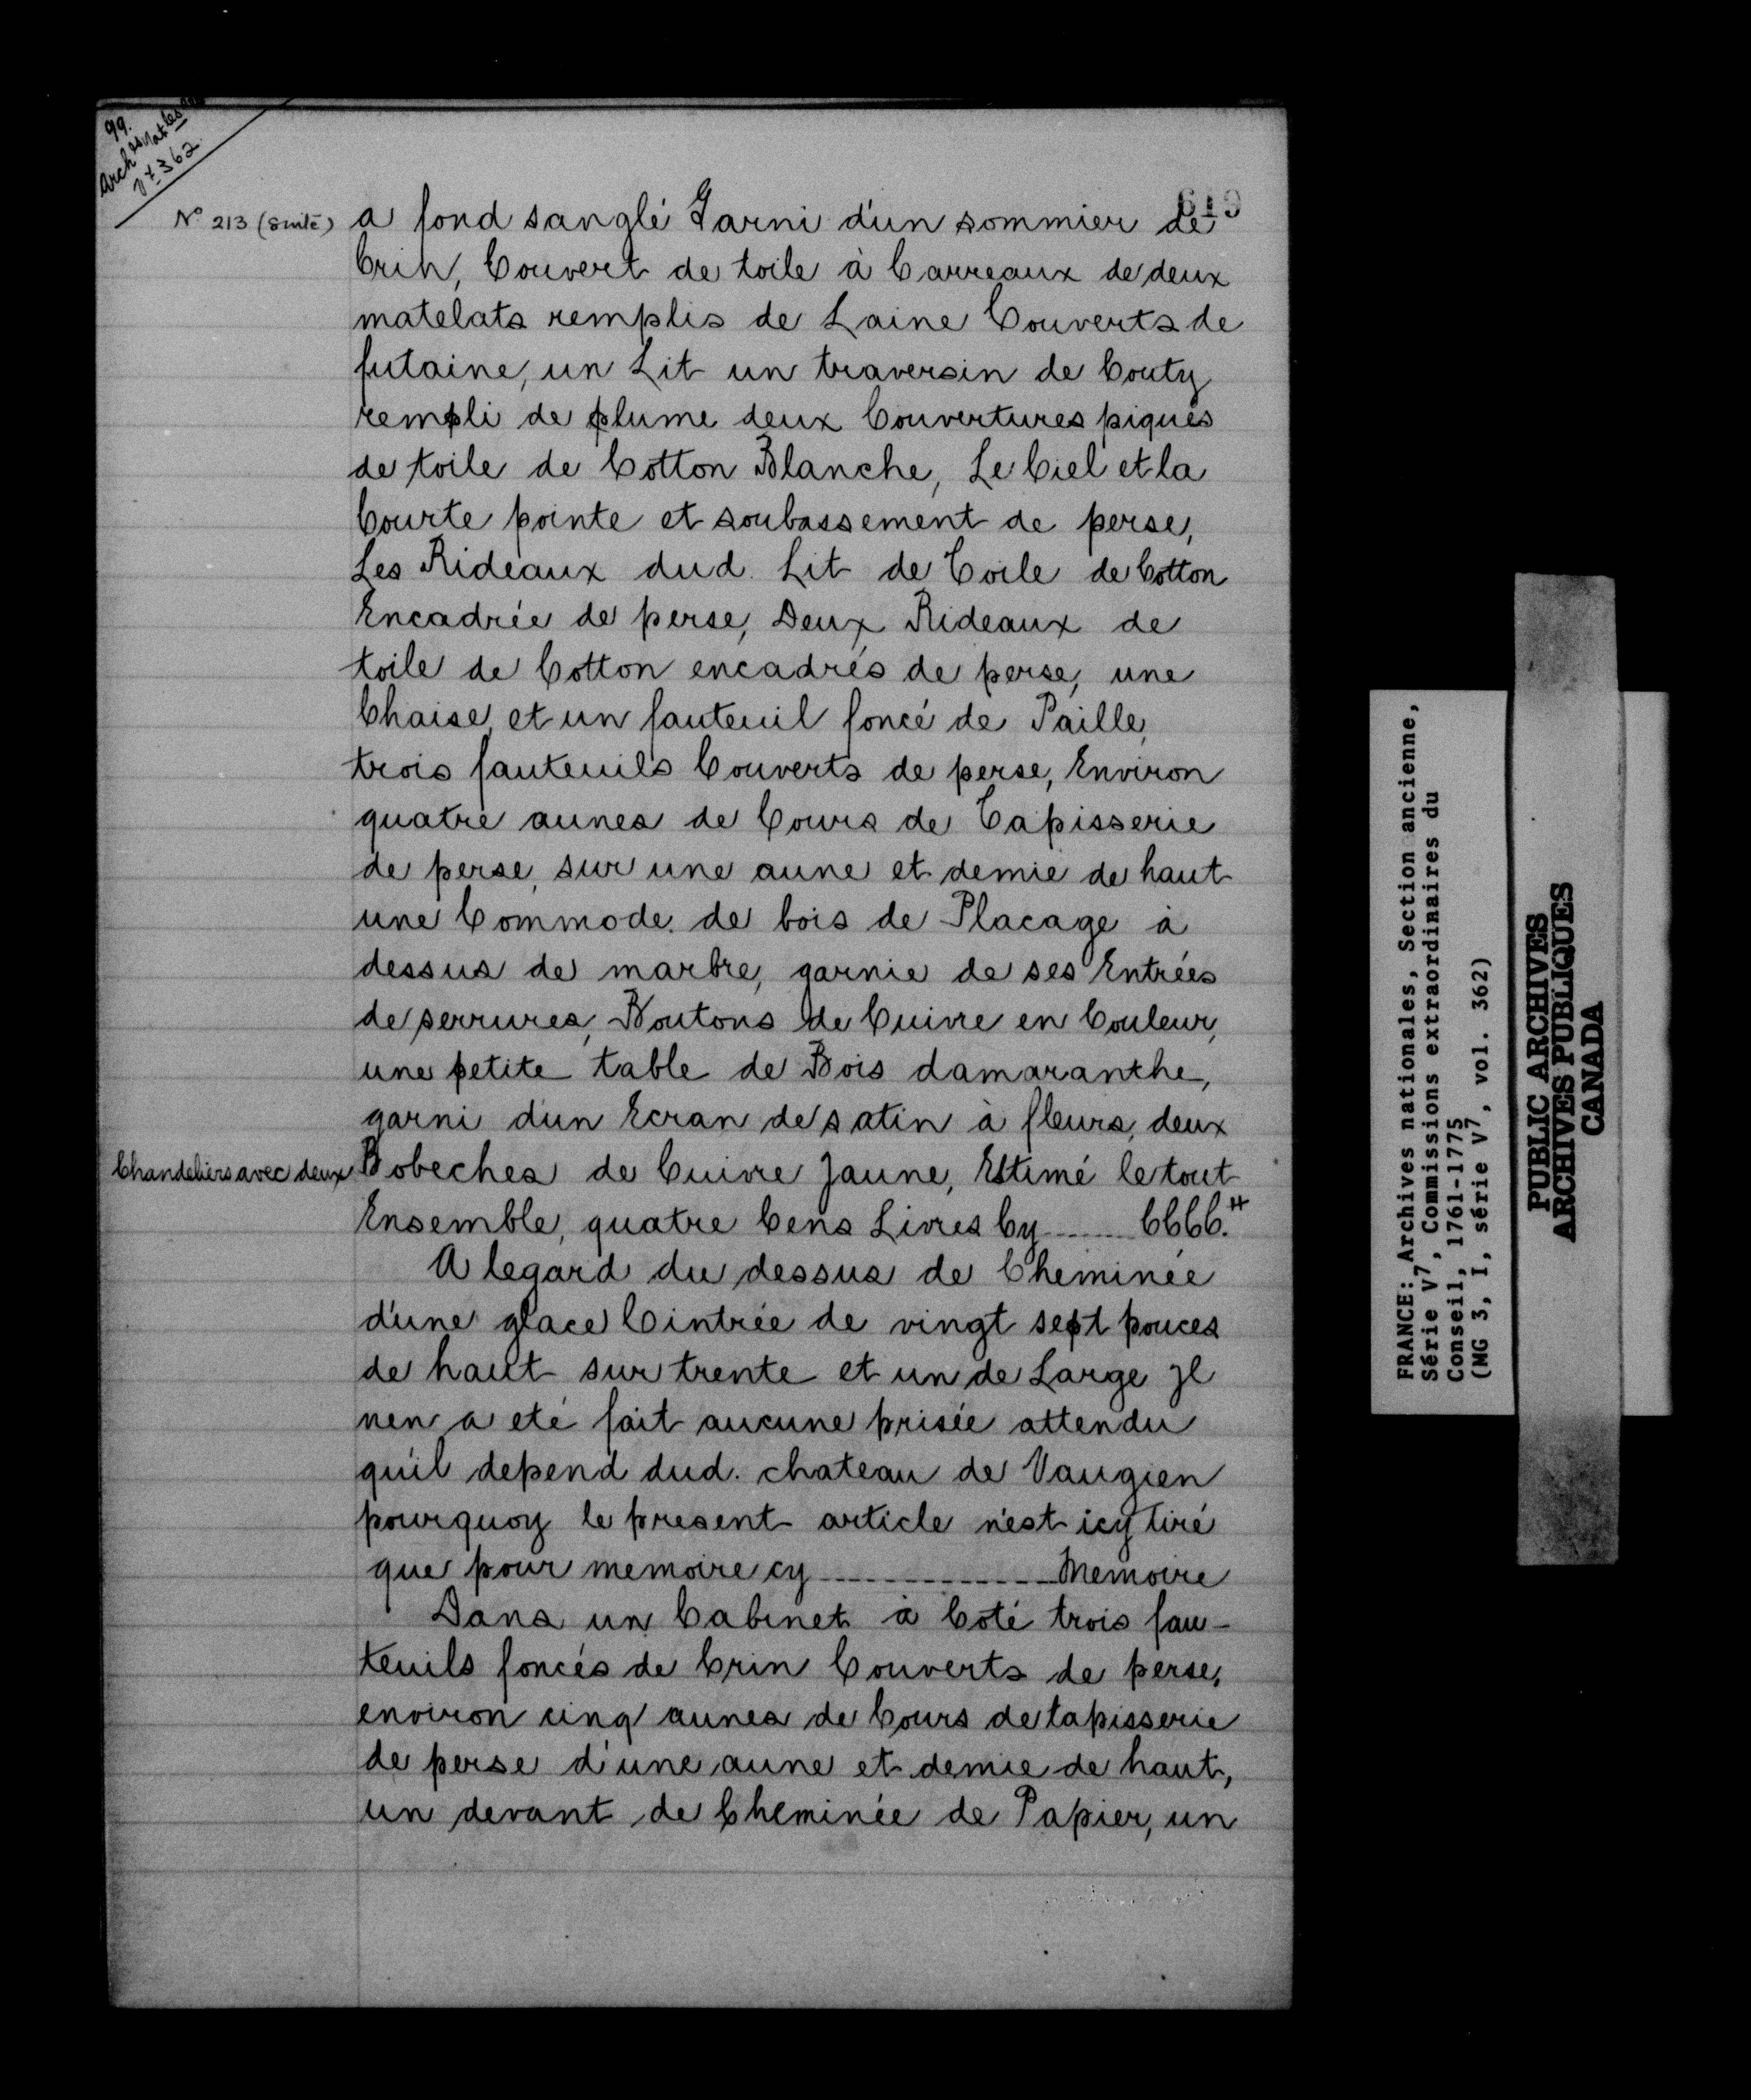 99.
Arch es Nat les
V 7 362
619
N° 213 (suite)
a fond sanglé Garni d'un sommier de
Crin, Couvert de toile à Carreaux de deux
matelats remplis de Laine Couverts de
futaine, un Lit un traversin de Couty
rempli de plume deux Couvertures piqués
de toile de Cotton Blanche, Le Ciel et la
Courte pointe et soubassement de perse,
Les Rideaux dud. Lit de Toile de Cotton
Encadrée de perse, Deux Rideaux de
toile de Cotton encadrés de perse, une
Chaise, et un fauteuil foncé de Paille,
trois fauteuils Couverts de perse, Environ
quatre aunes de Cours de Tapisserie
de perse, sur une aune et demie de haut
une Commode de bois de Placage à
dessus de marbre, garnie de ses Entrées
de serrures, Boutons de Cuivre en Couleur,
une petite table de Bois damaranthe,
garni d'un Ecran de satin à fleurs, deux
Chandeliers avec deux
Bobeches de Cuivre Jaune, Estimé le tout
Ensemble, quatre Cens Livres Cy ........ CCCC.tt
A legard du dessus de Cheminée
d'une glace Cintrée de vingt sept pouces
de haut sur trente et un de Large Jl
nen a eté fait aucune prisée attendu
qu'il depend dud. chateau de Vaugien
pourquoy le present article n'est icy tiré
que pour memoire cy -------------- Memoire
Dans un Cabinet à Coté trois fau-
teuils foncés de Crin Couverts de perse,
environ cinq aunes de Cours de tapisserie
de perse d'une aune et demie de haut,
un devant de Cheminée de Papier, un
FRANCE: Archives nationales, Section ancienne,
Série V7, Commissions extraordinaires du
Conseil, 1761-1775
(MG 3, I, série V7, vol. 362)
PUBLIC ARCHIVES
ARCHIVES PUBLIQUES
CANADA